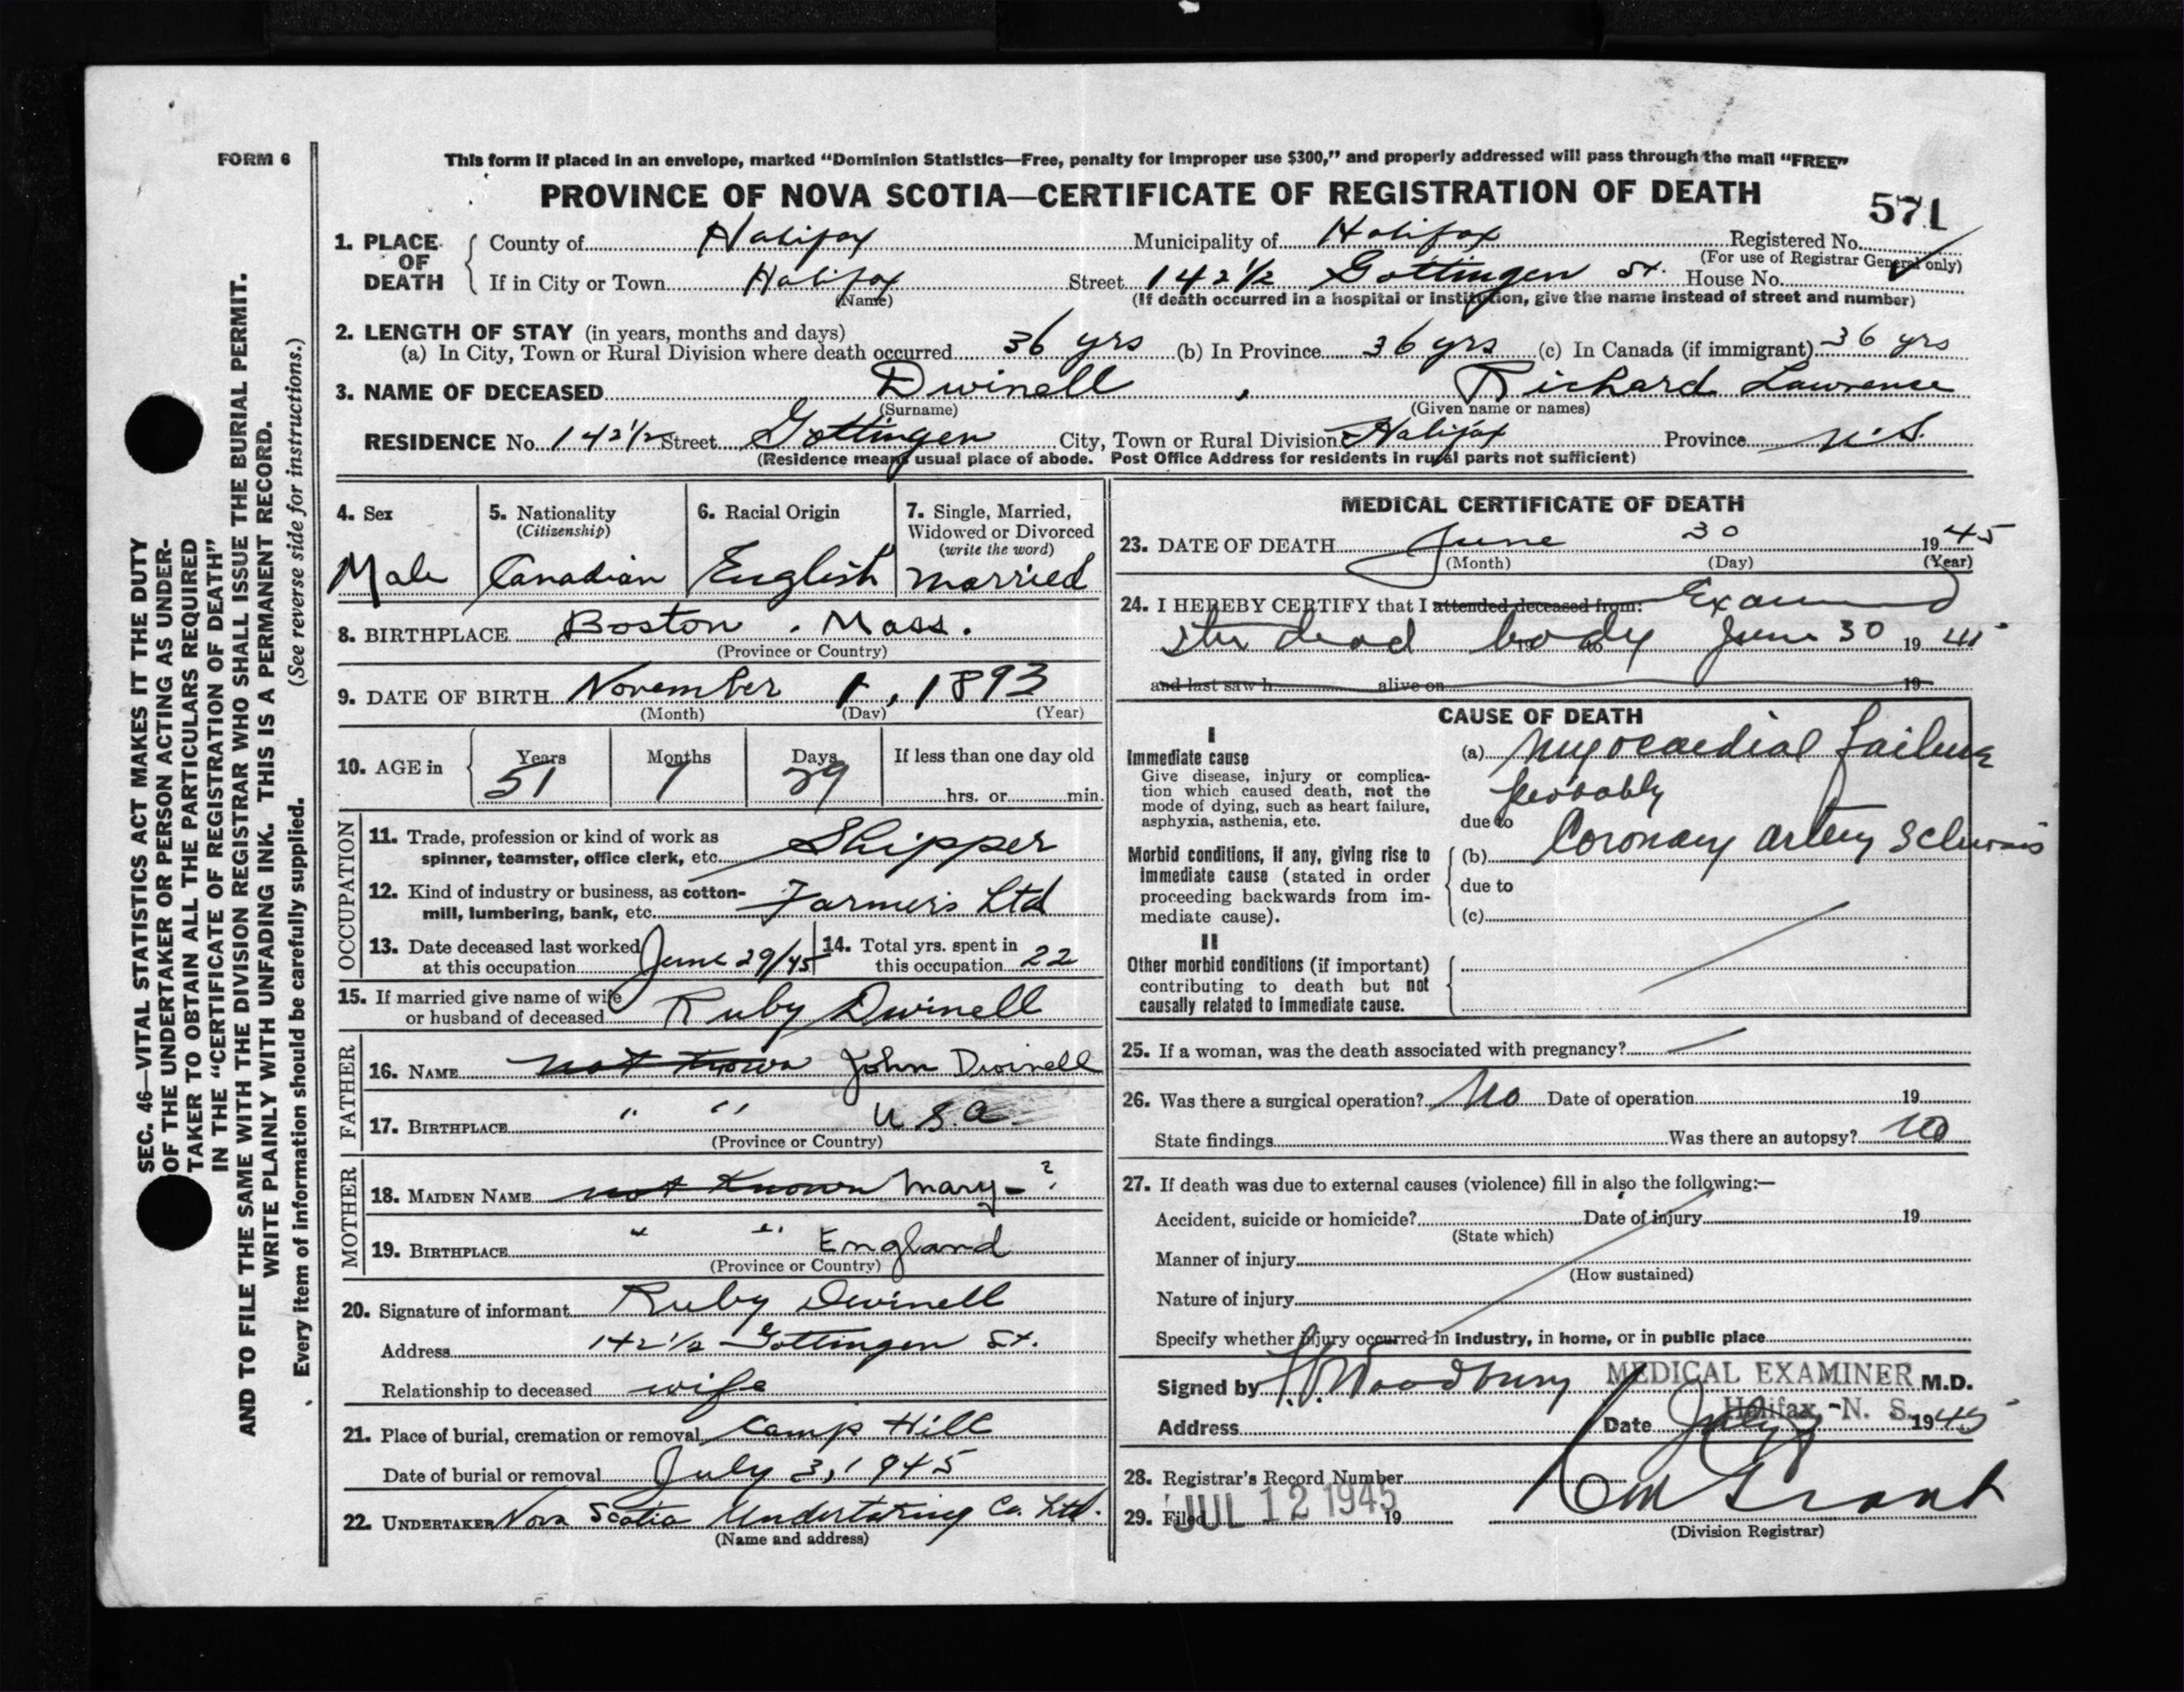 FORM 6
This form if placed in an envelope, marked “Dominion Statistics—Free, penalty for improper use $300,” and properly addressed will pass through the mail “FREE”
PROVINCE OF NOVA SCOTIA—CERTIFICATE OF REGISTRATION OF DEATH
571
1. PLACE OF DEATH
County of Halifax Municipality of Halifax Registered No.
(For use of Registrar General only)
If in City or Town Halifax Street 142½ Gottingen St. House No.
(Name) (If death occurred in a hospital or institution, give the name instead of street and number)
2. LENGTH OF STAY (in years, months and days)
(a) In City, Town or Rural Division where death occurred 36 yrs (b) In Province 36 yrs (c) In Canada (if immigrant) 36 yrs
3. NAME OF DECEASED Dwinell , Richard Lawrense
(Surname) (Given name or names)
RESIDENCE No. 142½ Street Gottingen City, Town or Rural Division Halifax Province N.S.
(Residence means usual place of abode. Post Office Address for residents in rural parts not sufficient)
4. Sex
Male
5. Nationality
(Citizenship)
Canadian
6. Racial Origin
English
7. Single, Married,
Widowed or Divorced
(write the word)
married
8. BIRTHPLACE Boston . Mass.
(Province or Country)
9. DATE OF BIRTH November 1, 1893
(Month) (Day) (Year)
10. AGE in
Years Months Days If less than one day old
51 7 29
hrs. or min.
OCCUPATION
11. Trade, profession or kind of work as
spinner, teamster, office clerk, etc. Shipper
12. Kind of industry or business, as cotton-
mill, lumbering, bank, etc. Farmers Ltd
13. Date deceased last worked
at this occupation June 29/45
14. Total yrs. spent in
this occupation 22
15. If married give name of wife
or husband of deceased Ruby Dwinell
FATHER
16. NAME not known John Dwinell
17. BIRTHPLACE " " U.S.A.
(Province or Country)
MOTHER
18. MAIDEN NAME not known Mary - ?
19. BIRTHPLACE " " England
(Province or Country)
20. Signature of informant Ruby Dwinell
Address 142½ Gottingen St.
Relationship to deceased wife
21. Place of burial, cremation or removal Camp Hill
Date of burial or removal July 3, 1945
22. UNDERTAKER Nova Scotia Undertaking Co. Ltd.
(Name and address)
MEDICAL CERTIFICATE OF DEATH
23. DATE OF DEATH June 30 1945
(Month) (Day) (Year)
24. I HEREBY CERTIFY that I attended deceased from: Examined
the dead body June 30 1945
and last saw h alive on 19
CAUSE OF DEATH
I
Immediate cause
Give disease, injury or complica-
tion which caused death, not the
mode of dying, such as heart failure,
asphyxia, asthenia, etc.
(a) Myocardial failure
probably
due to
Morbid conditions, if any, giving rise to
immediate cause (stated in order
proceeding backwards from im-
mediate cause).
(b) Coronary artery sclerosis
due to
(c)
II
Other morbid conditions (if important)
contributing to death but not
causally related to immediate cause.
25. If a woman, was the death associated with pregnancy?
26. Was there a surgical operation? No Date of operation 19
State findings Was there an autopsy? No
27. If death was due to external causes (violence) fill in also the following:—
Accident, suicide or homicide? Date of injury 19
(State which)
Manner of injury
(How sustained)
Nature of injury
Specify whether injury occurred in industry, in home, or in public place
Signed by Woodbury MEDICAL EXAMINER M.D.
Halifax - N. S.
Address Date July 1945
28. Registrar's Record Number
29. Filed JUL 12 1945 19 Grant
(Division Registrar)
SEC. 46—VITAL STATISTICS ACT MAKES IT THE DUTY
OF THE UNDERTAKER OR PERSON ACTING AS UNDER-
TAKER TO OBTAIN ALL THE PARTICULARS REQUIRED
IN THE “CERTIFICATE OF REGISTRATION OF DEATH”
AND TO FILE THE SAME WITH THE DIVISION REGISTRAR WHO SHALL ISSUE THE BURIAL PERMIT.
WRITE PLAINLY WITH UNFADING INK. THIS IS A PERMANENT RECORD.
Every item of information should be carefully supplied. (See reverse side for instructions.)